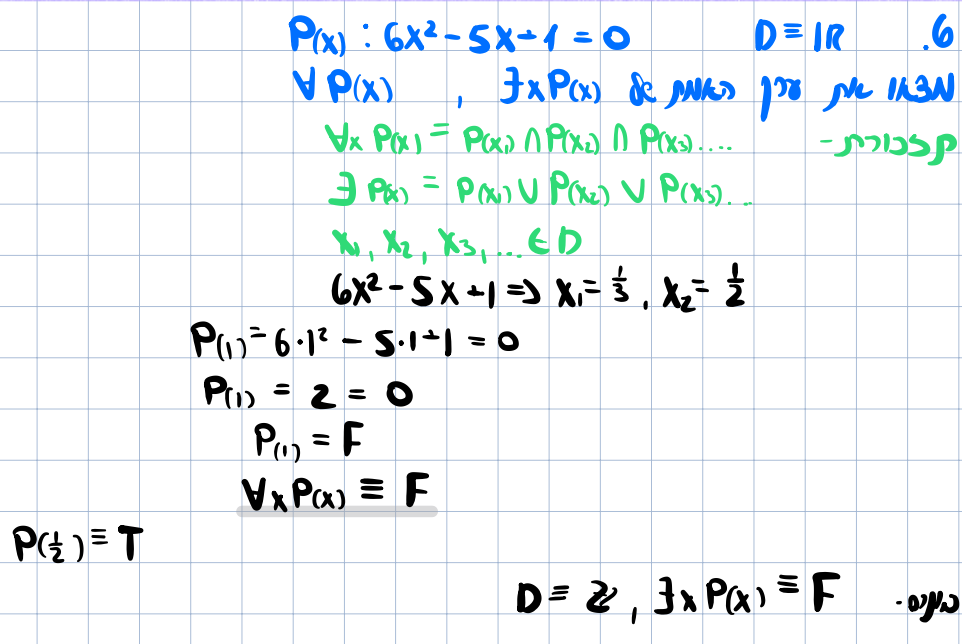 6. D ≡ ℝ P(x) : 6x² - 5x + 1 = 0
מצאו את ערך האמת של ∃x P(x) , ∀ P(x)
תזכורת - ∀x P(x) = P(x₁) ∩ P(x₂) ∩ P(x₃)....
∃ P(x) = P(x₁) ∪ P(x₂) ∪ P(x₃)...
x₁, x₂, x₃, ... ∈ D
6x² - 5x + 1 => x₁ = 1/3 , x₂ = 1/2
P(1) = 6·1² - 5·1 + 1 = 0
P(1) = 2 = 0
P(1) = F
∀x P(x) ≡ F
P(1/2) ≡ T
D ≡ ℤ , ∃x P(x) ≡ F